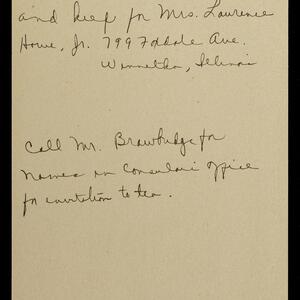 and keep for Mrs. Laurence
Howe, Jr. 799 Foxdale Ave.
Winnetka, Illinois
Call Mr. Brawbridge for
names in Consulari office
for invitation to tea.